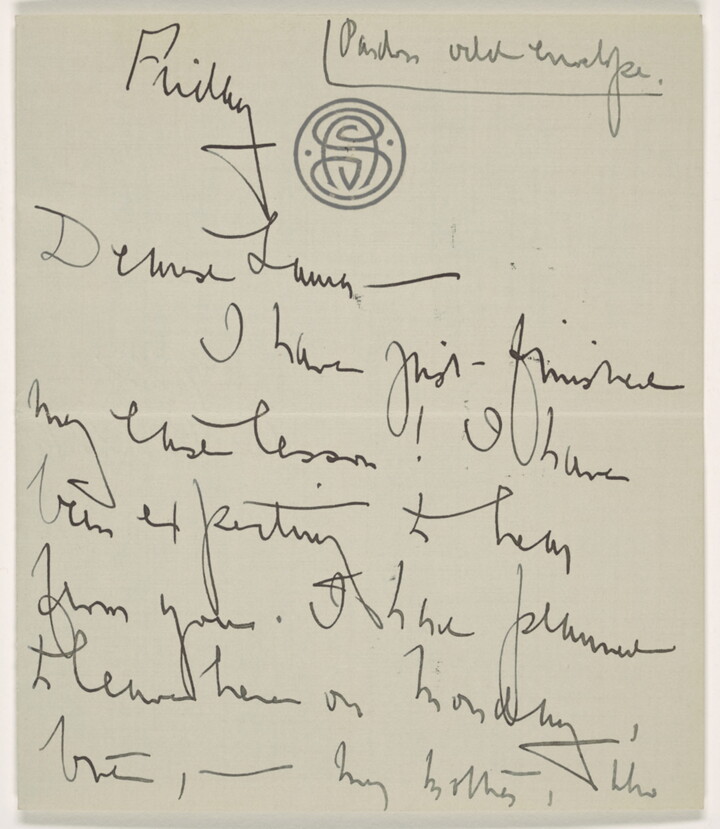 Pardon odd envelope.
Friday
Dearest Laura —
I have just finished
my last lesson! I have
been expecting to hear
from you. I had planned
to leave here on Monday,
but, — my mother, who